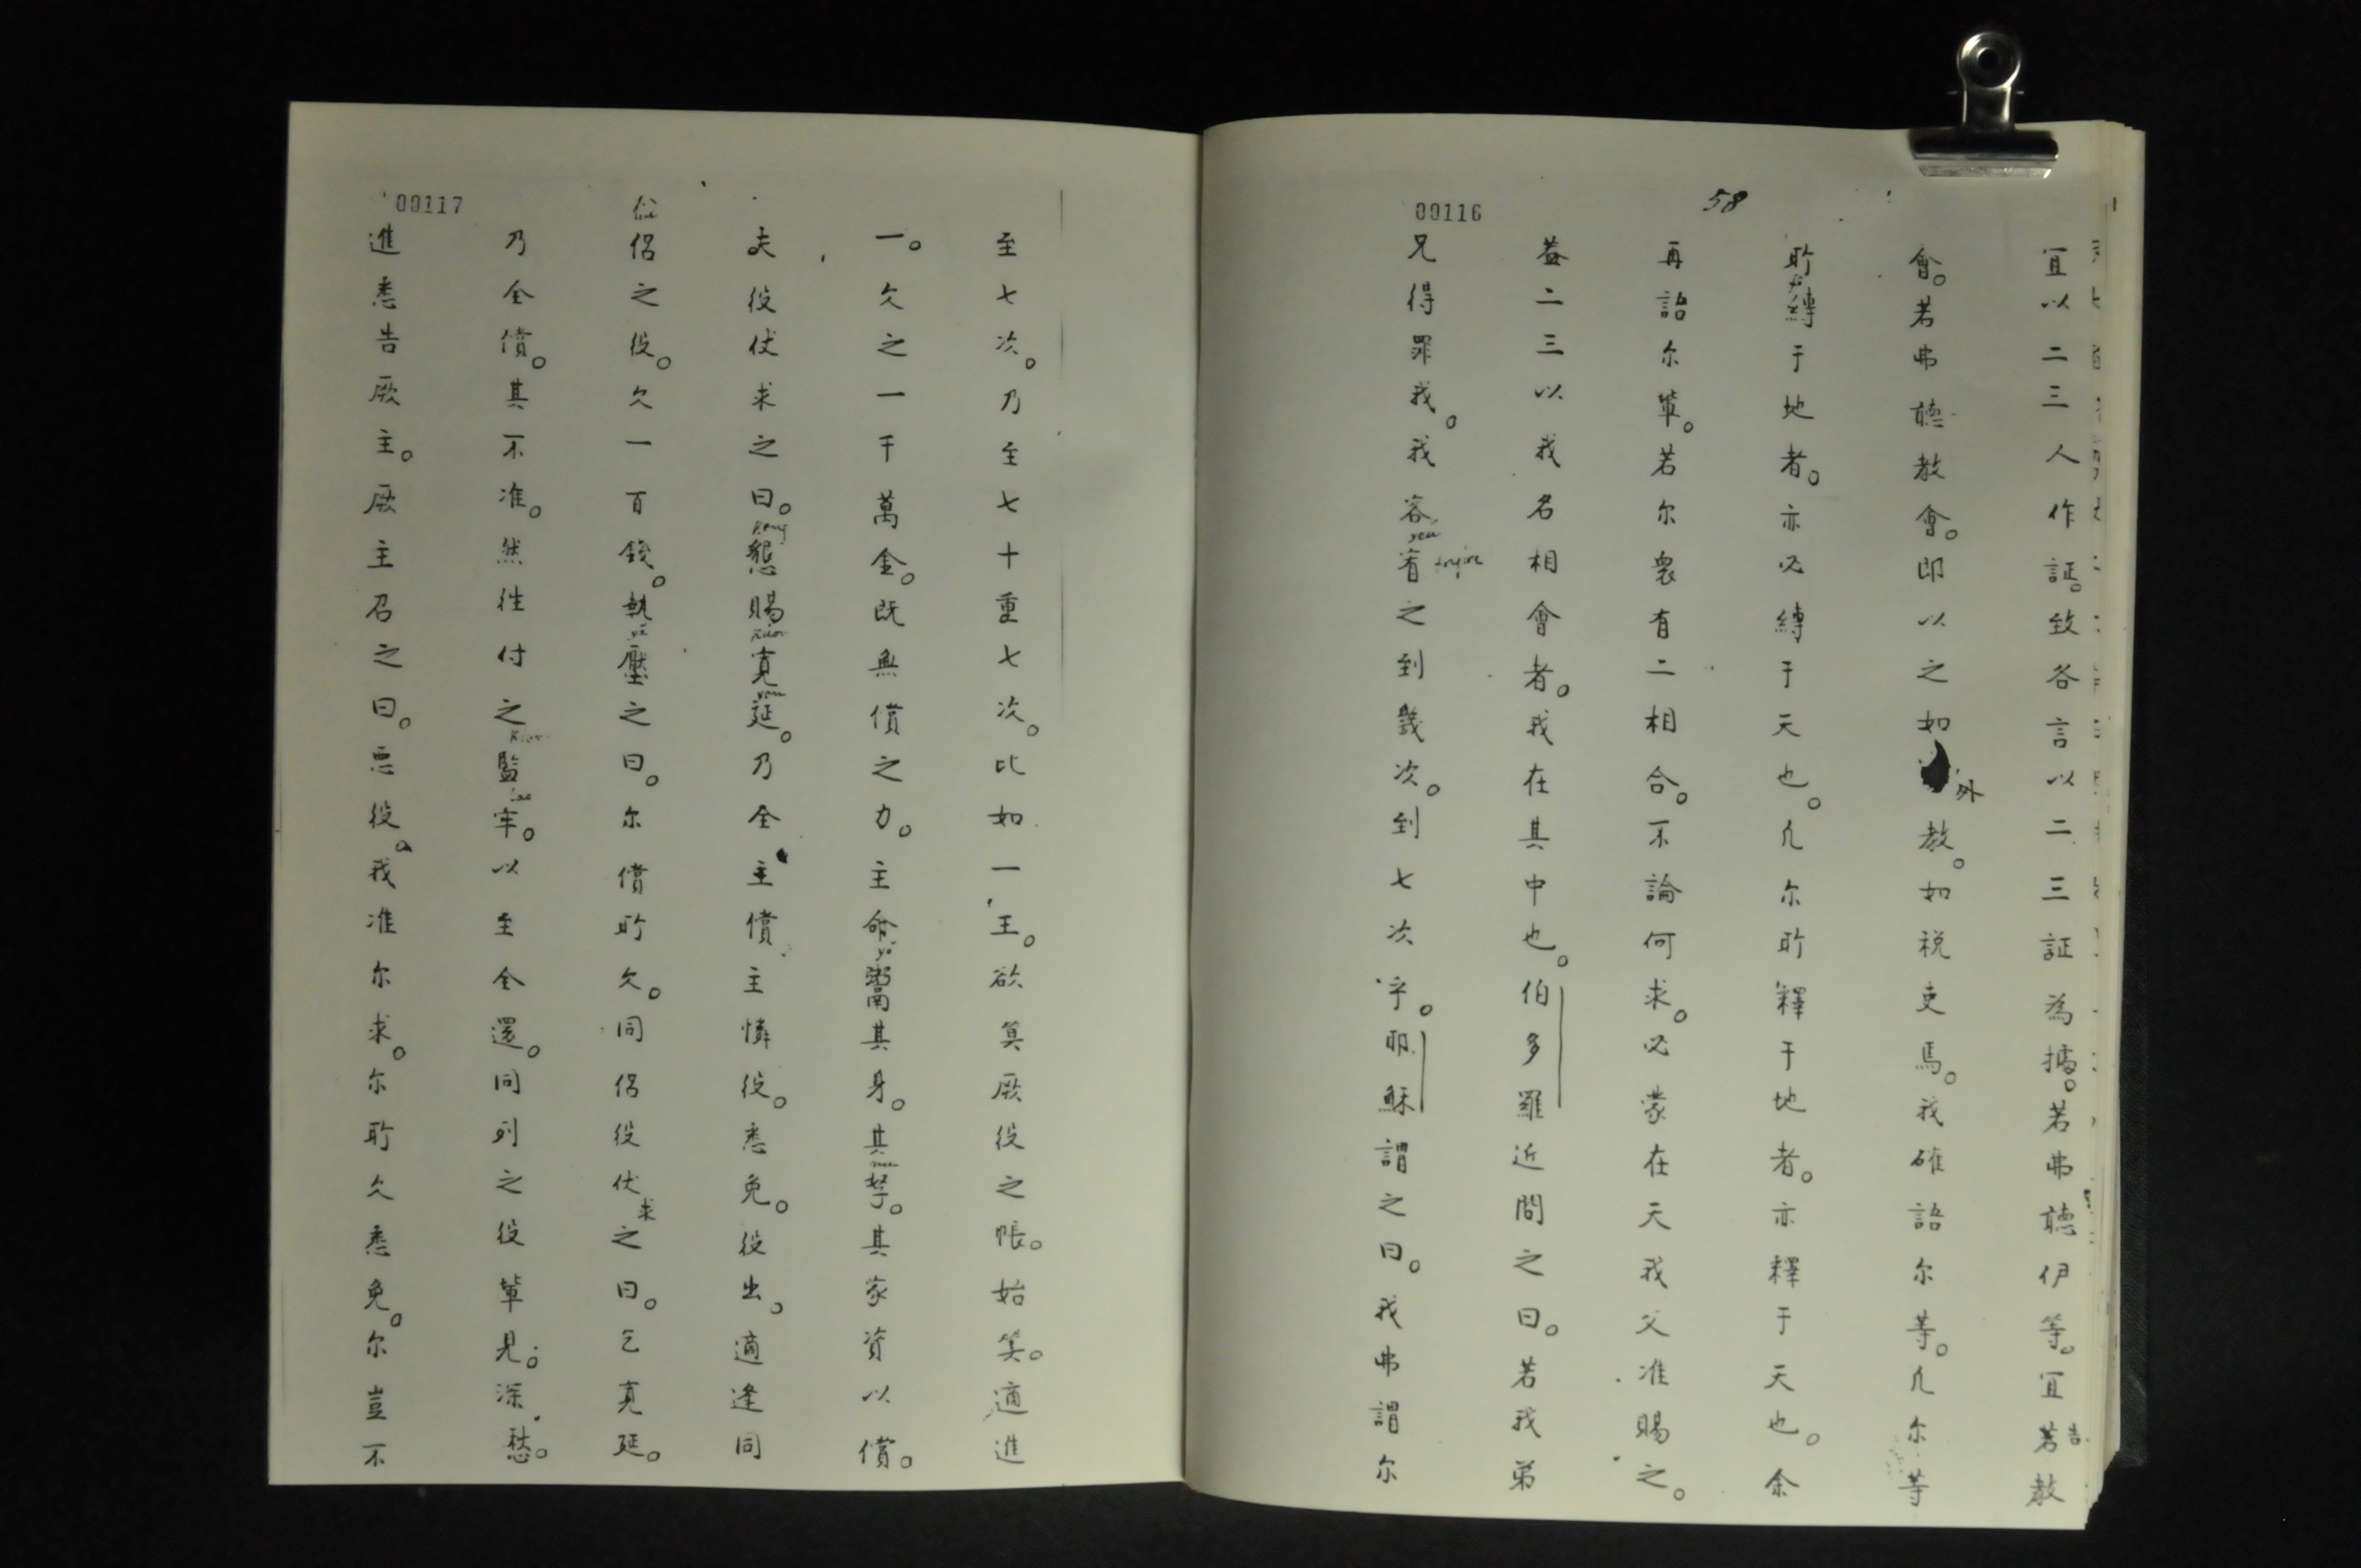 58
00116
宜以二三人作証。致各言以二三証為據。若弗聽伊等。宜告教
會。若弗聽教會。即以之如外教。如税吏焉。我確語尔等。凡尔等
所縛于地者。亦必縛于天也。凡尔所釋于地者。亦釋于天也。余
再語尔輩。若尔衆有二相合。不論何求。必蒙在天我父准賜之。
蓋二三以我名相會者。我在其中也。伯多羅近問之曰。若我弟
兄得罪我。我容宥之到幾次。到七次乎。耶穌謂之曰。我弗謂尔
00117
至七次。乃至七十重七次。比如一王。欲筭厥役之帳。始筭。適進
一。欠之一千萬金。既無償之力。主命鬻其身。其孥。其家資以償。
夫役伏求之曰。懇賜寛延。乃全償主憐役。悉免。役出。適逢同
侶之役。欠一百錢。執壓之曰。尔償所欠。同侶役伏求之曰。乞寛延。
乃全償。其不准。然往付之監牢。以至全還。同列之役輩見。深愁。
進悉告厥主。厥主召之曰。悪役。我准尔求。尔所欠悉免。尔豈不